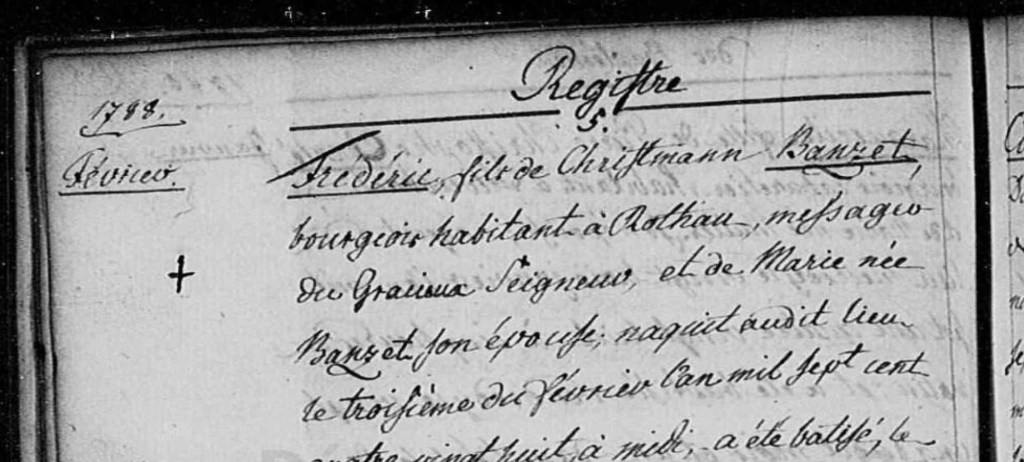 Registre
1788.
5.
Février.
Frédéric, fils de Christmann Banzet,
bourgeois habitant à Rothau, messager
du Gracieux Seigneur, et de Marie née
Banzet son épouse, naquit audit lieu
le troisième du Février l'an mil sept cent
quatre vingt huit, à midi, a été batisé, le